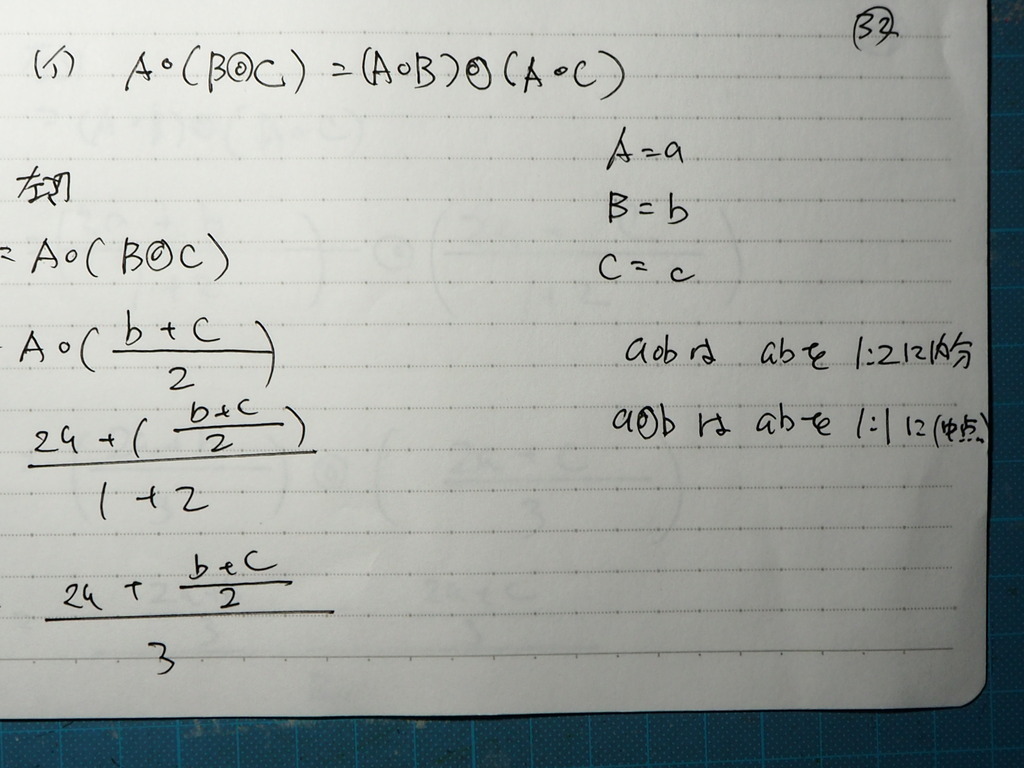 ㉜
(イ) A∘(B⊚C) = (A∘B)⊚(A∘C)
A = a
B = b
C = c
左辺
= A∘(B⊚C)
A∘((b + c)/2)
(2a + ((b+c)/2))/(1 + 2)
(2a + (b+c)/2)/3
a∘b は ab を 1:2に内分
a⊚b は ab を 1:1に(中点)